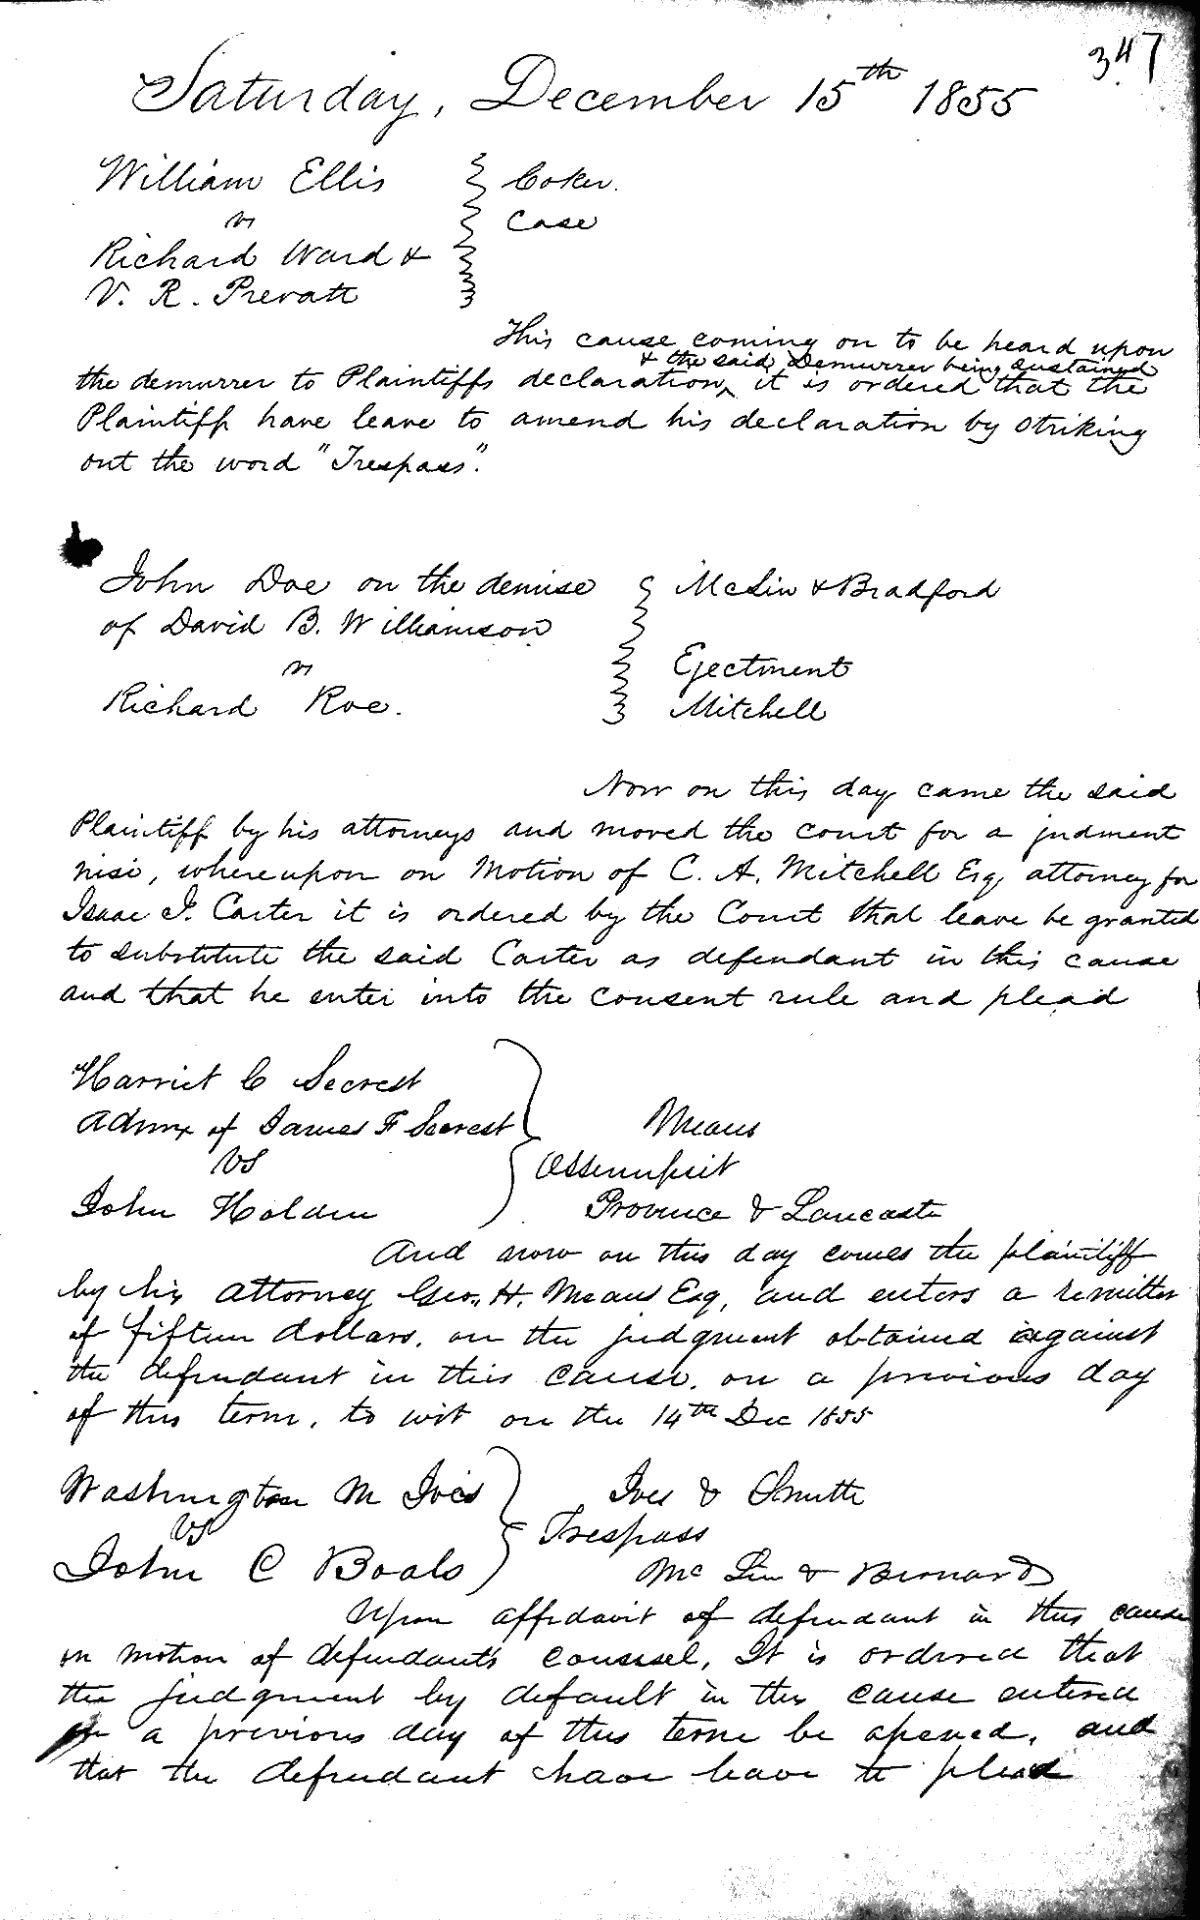 347
Saturday, December 15th 1855
William Ellis Coker.
vs Case
Richard Ward &
V. R. Prevatt
This cause coming on to be heard upon
& the said Demurrer being sustained
the demurrer to Plaintiffs declaration, it is ordered that the
Plaintiff have leave to amend his declaration by striking
out the word "Trespass".
John Doe on the demise McLin & Bradford
of David B. Williamson
vs Ejectment
Richard Roe. Mitchell
Now on this day came the said
Plaintiff by his attorneys and moved the court for a judment
nisi, whereupon on motion of C. A. Mitchell Esq, attorney for
Isaac J. Carter it is ordered by the Court that leave be granted
to substitute the said Carter as defendant in this cause
and that he enter into the consent rule and plead
Harriet C Secrest
Admx of James F Secrest Means
vs Assumpsit
John Holden Province & Lancaste
And now on this day comes the plaintiff
by his attorney Geo. H. Means Esq, and enters a remitter
of fifteen dollars, on the judgment obtained against
the defendant in this cause, on a previous day
of this term, to wit on the 14th Dec 1855
Washington M Ives Ives &
vs Trespass
John C Boals Mc Lin & Bernard
Upon affidavit of defendant in this cause
on motion of defendant's counsel, It is ordered that
the judgment by default in this cause entered
on a previous day of this term be opened, and
that the defendant have leave to plead